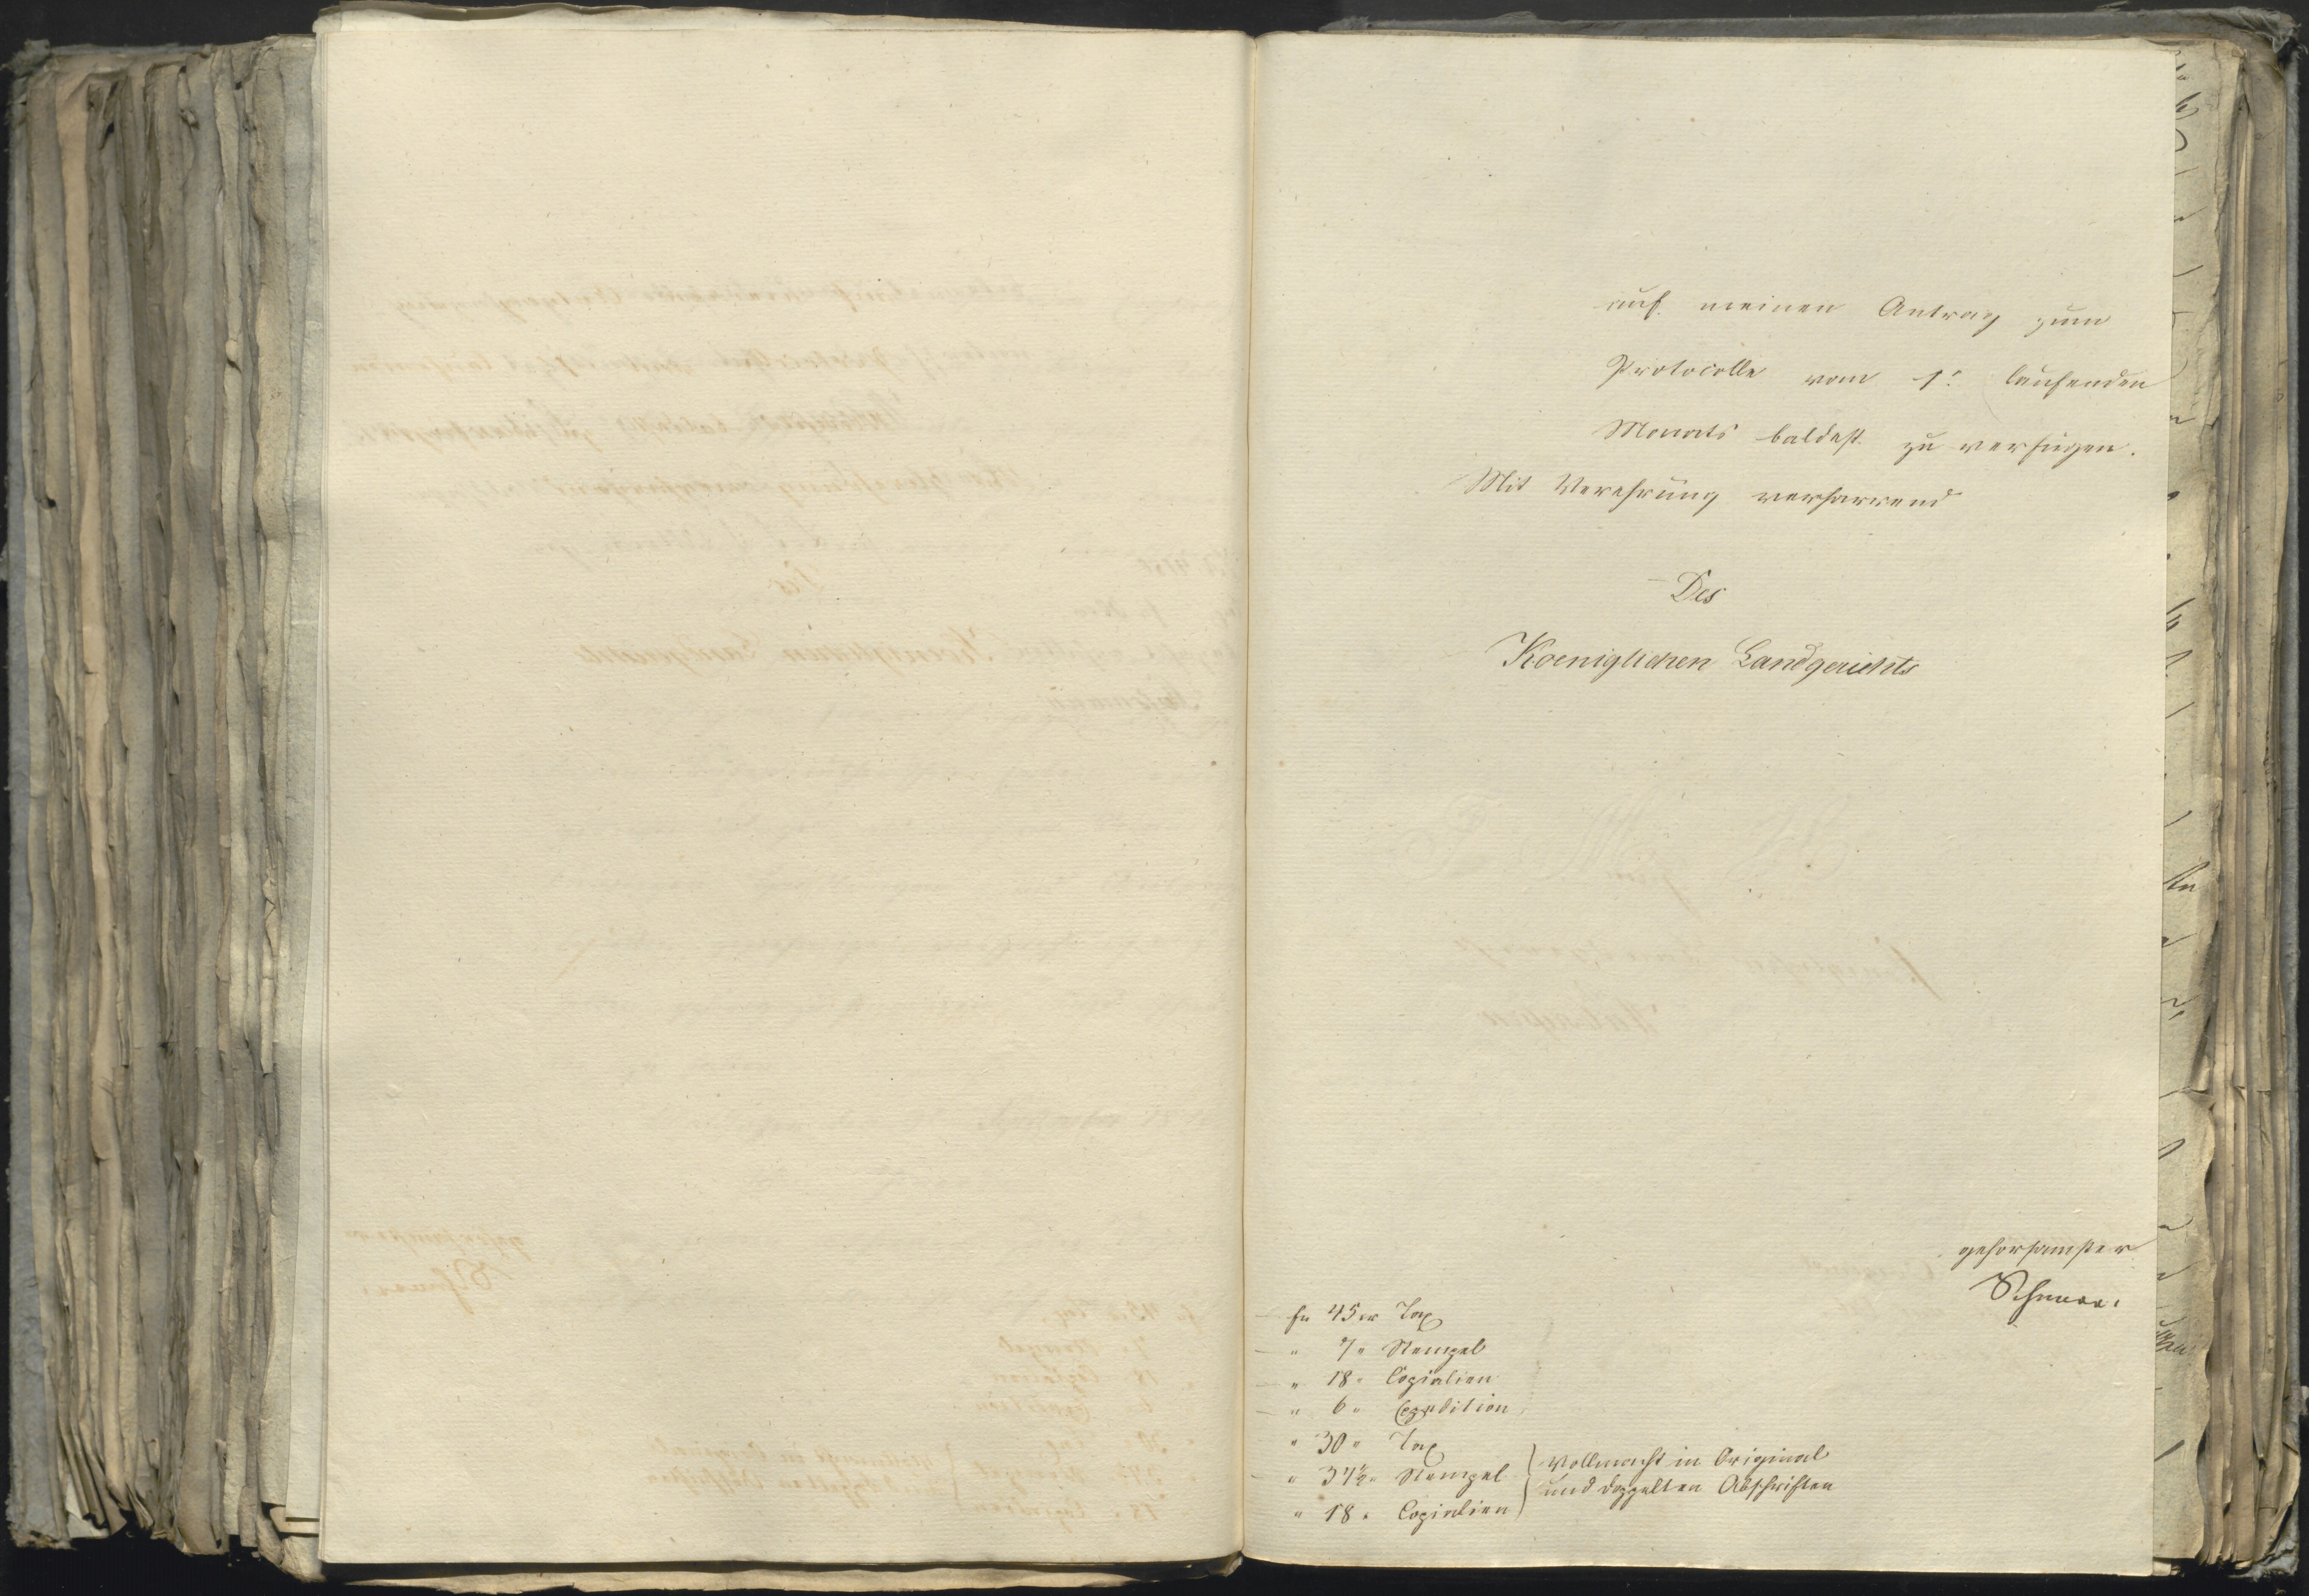 auf meinen Antrag zum
Protocolle vom 1. laufenden
Monats baldest zu verfügen.
Mit Verehrung verharrend
Des
Koeniglichen Landgerichts
gehorsamster
45 xr Tax
" 7 " Stempel
" 18 " Copialien
" 6 " Expedition
" 30 " Tax
" 37½ " Stempel } Vollmacht in Original
und doppelten Abschriften
" 18 " Copialien